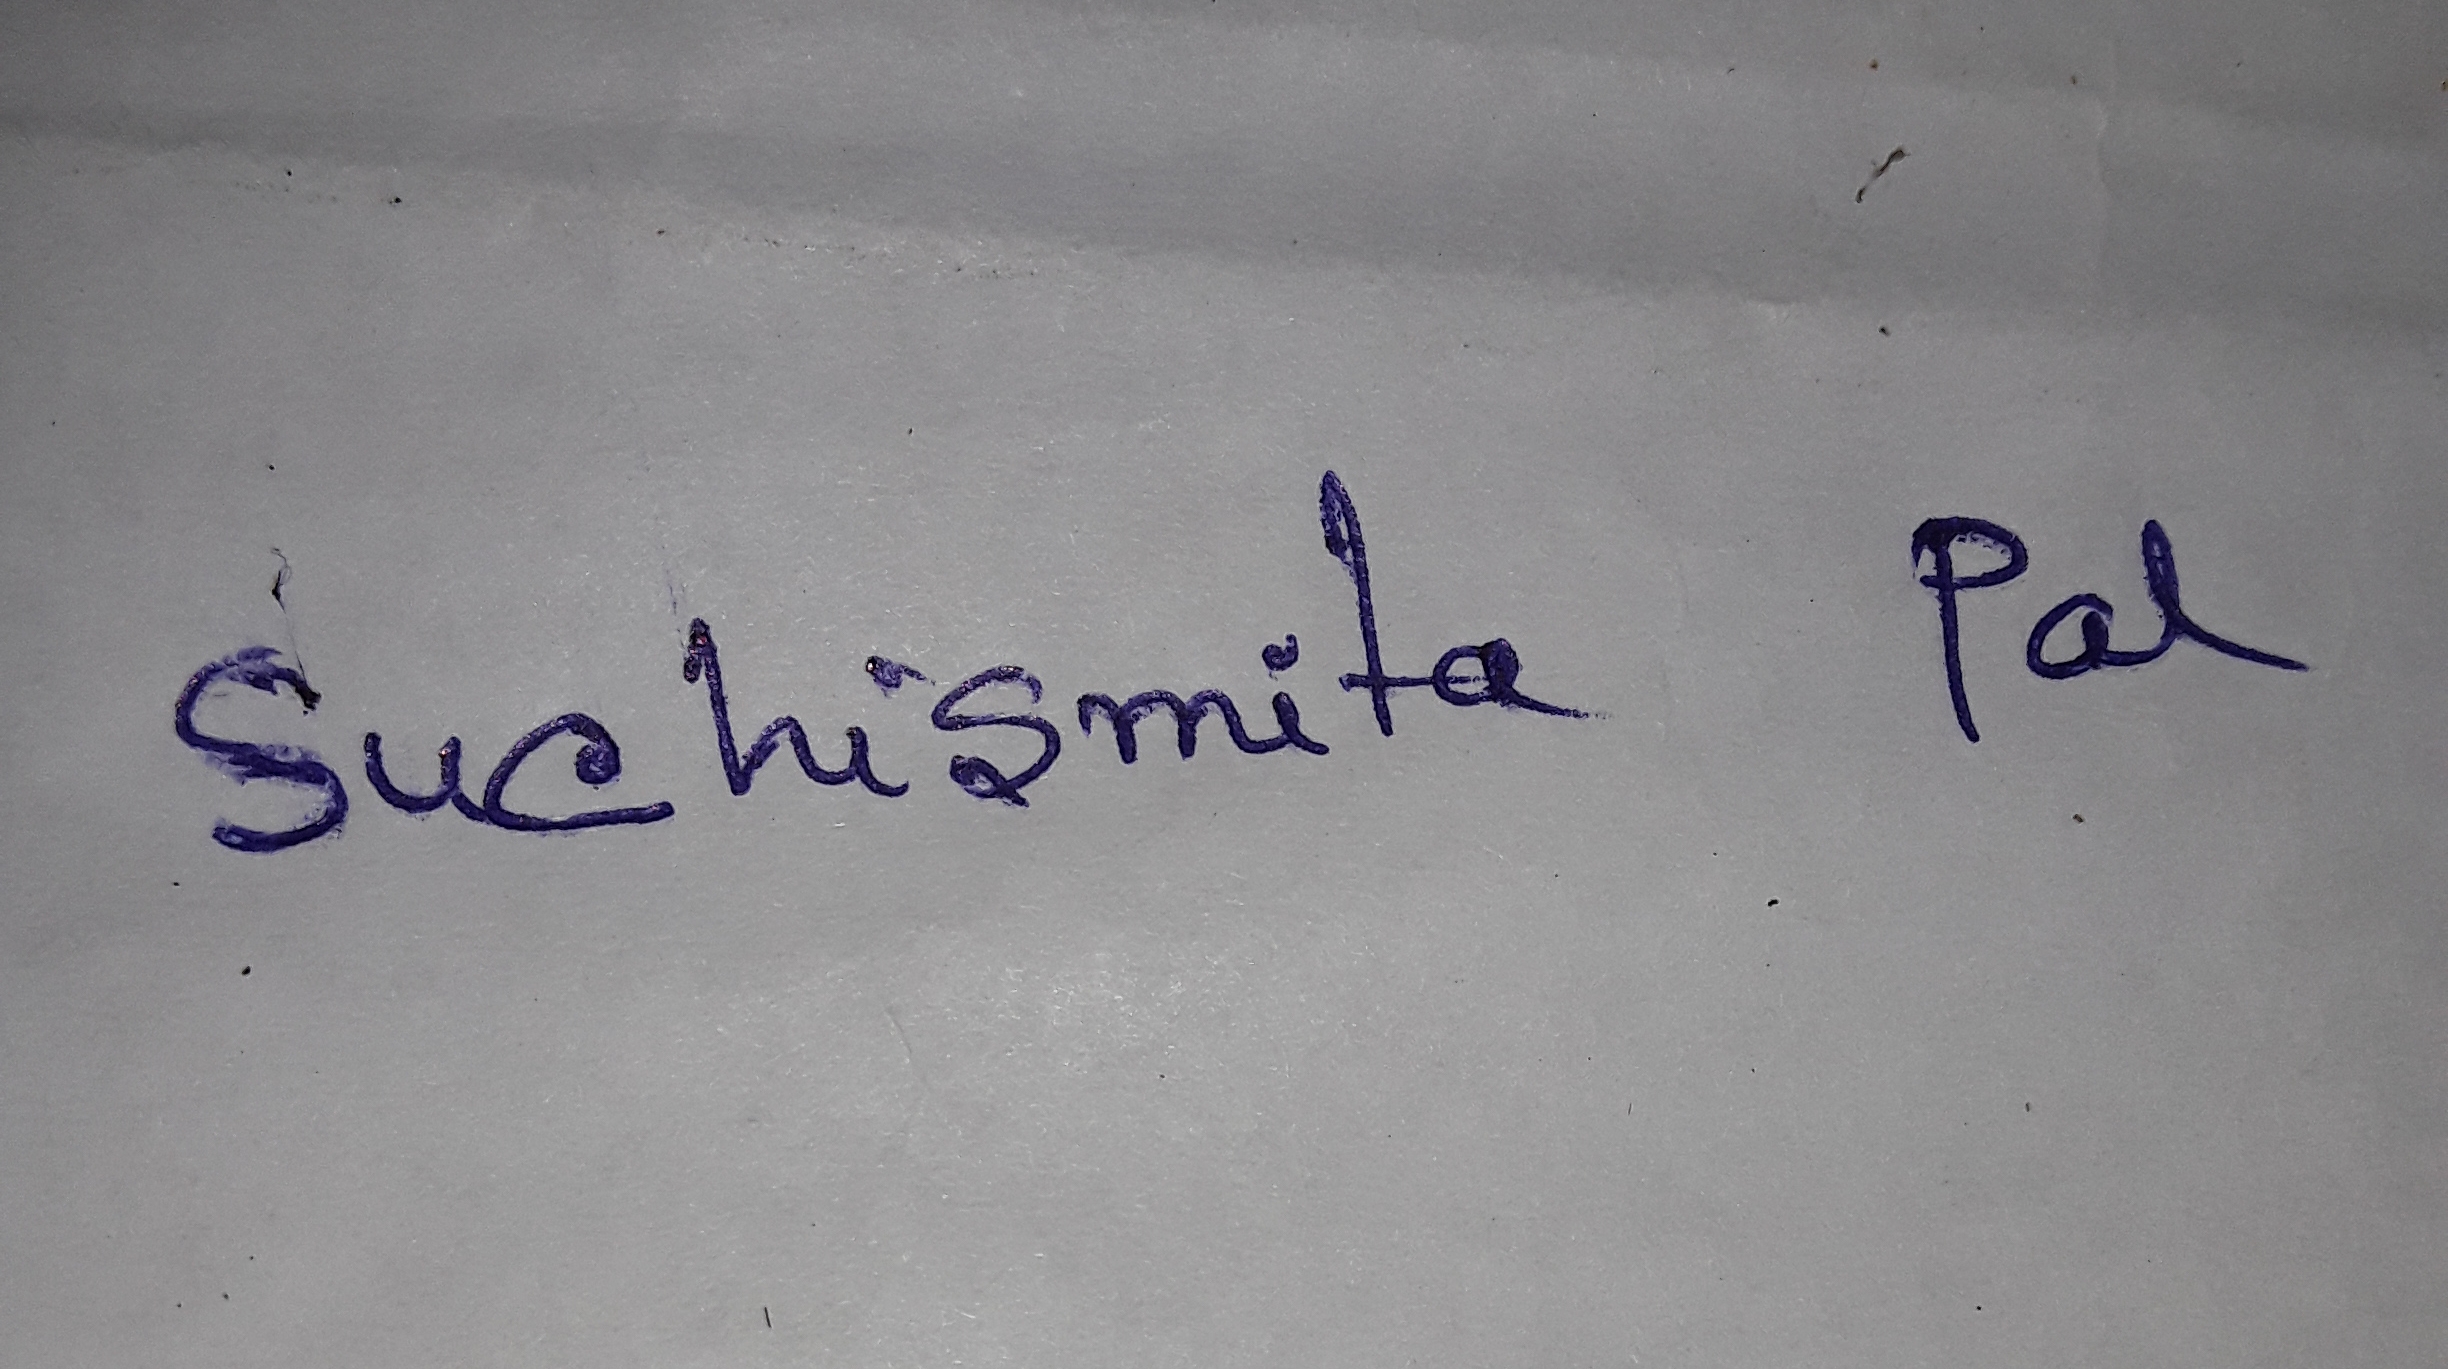 Suchismita Pal